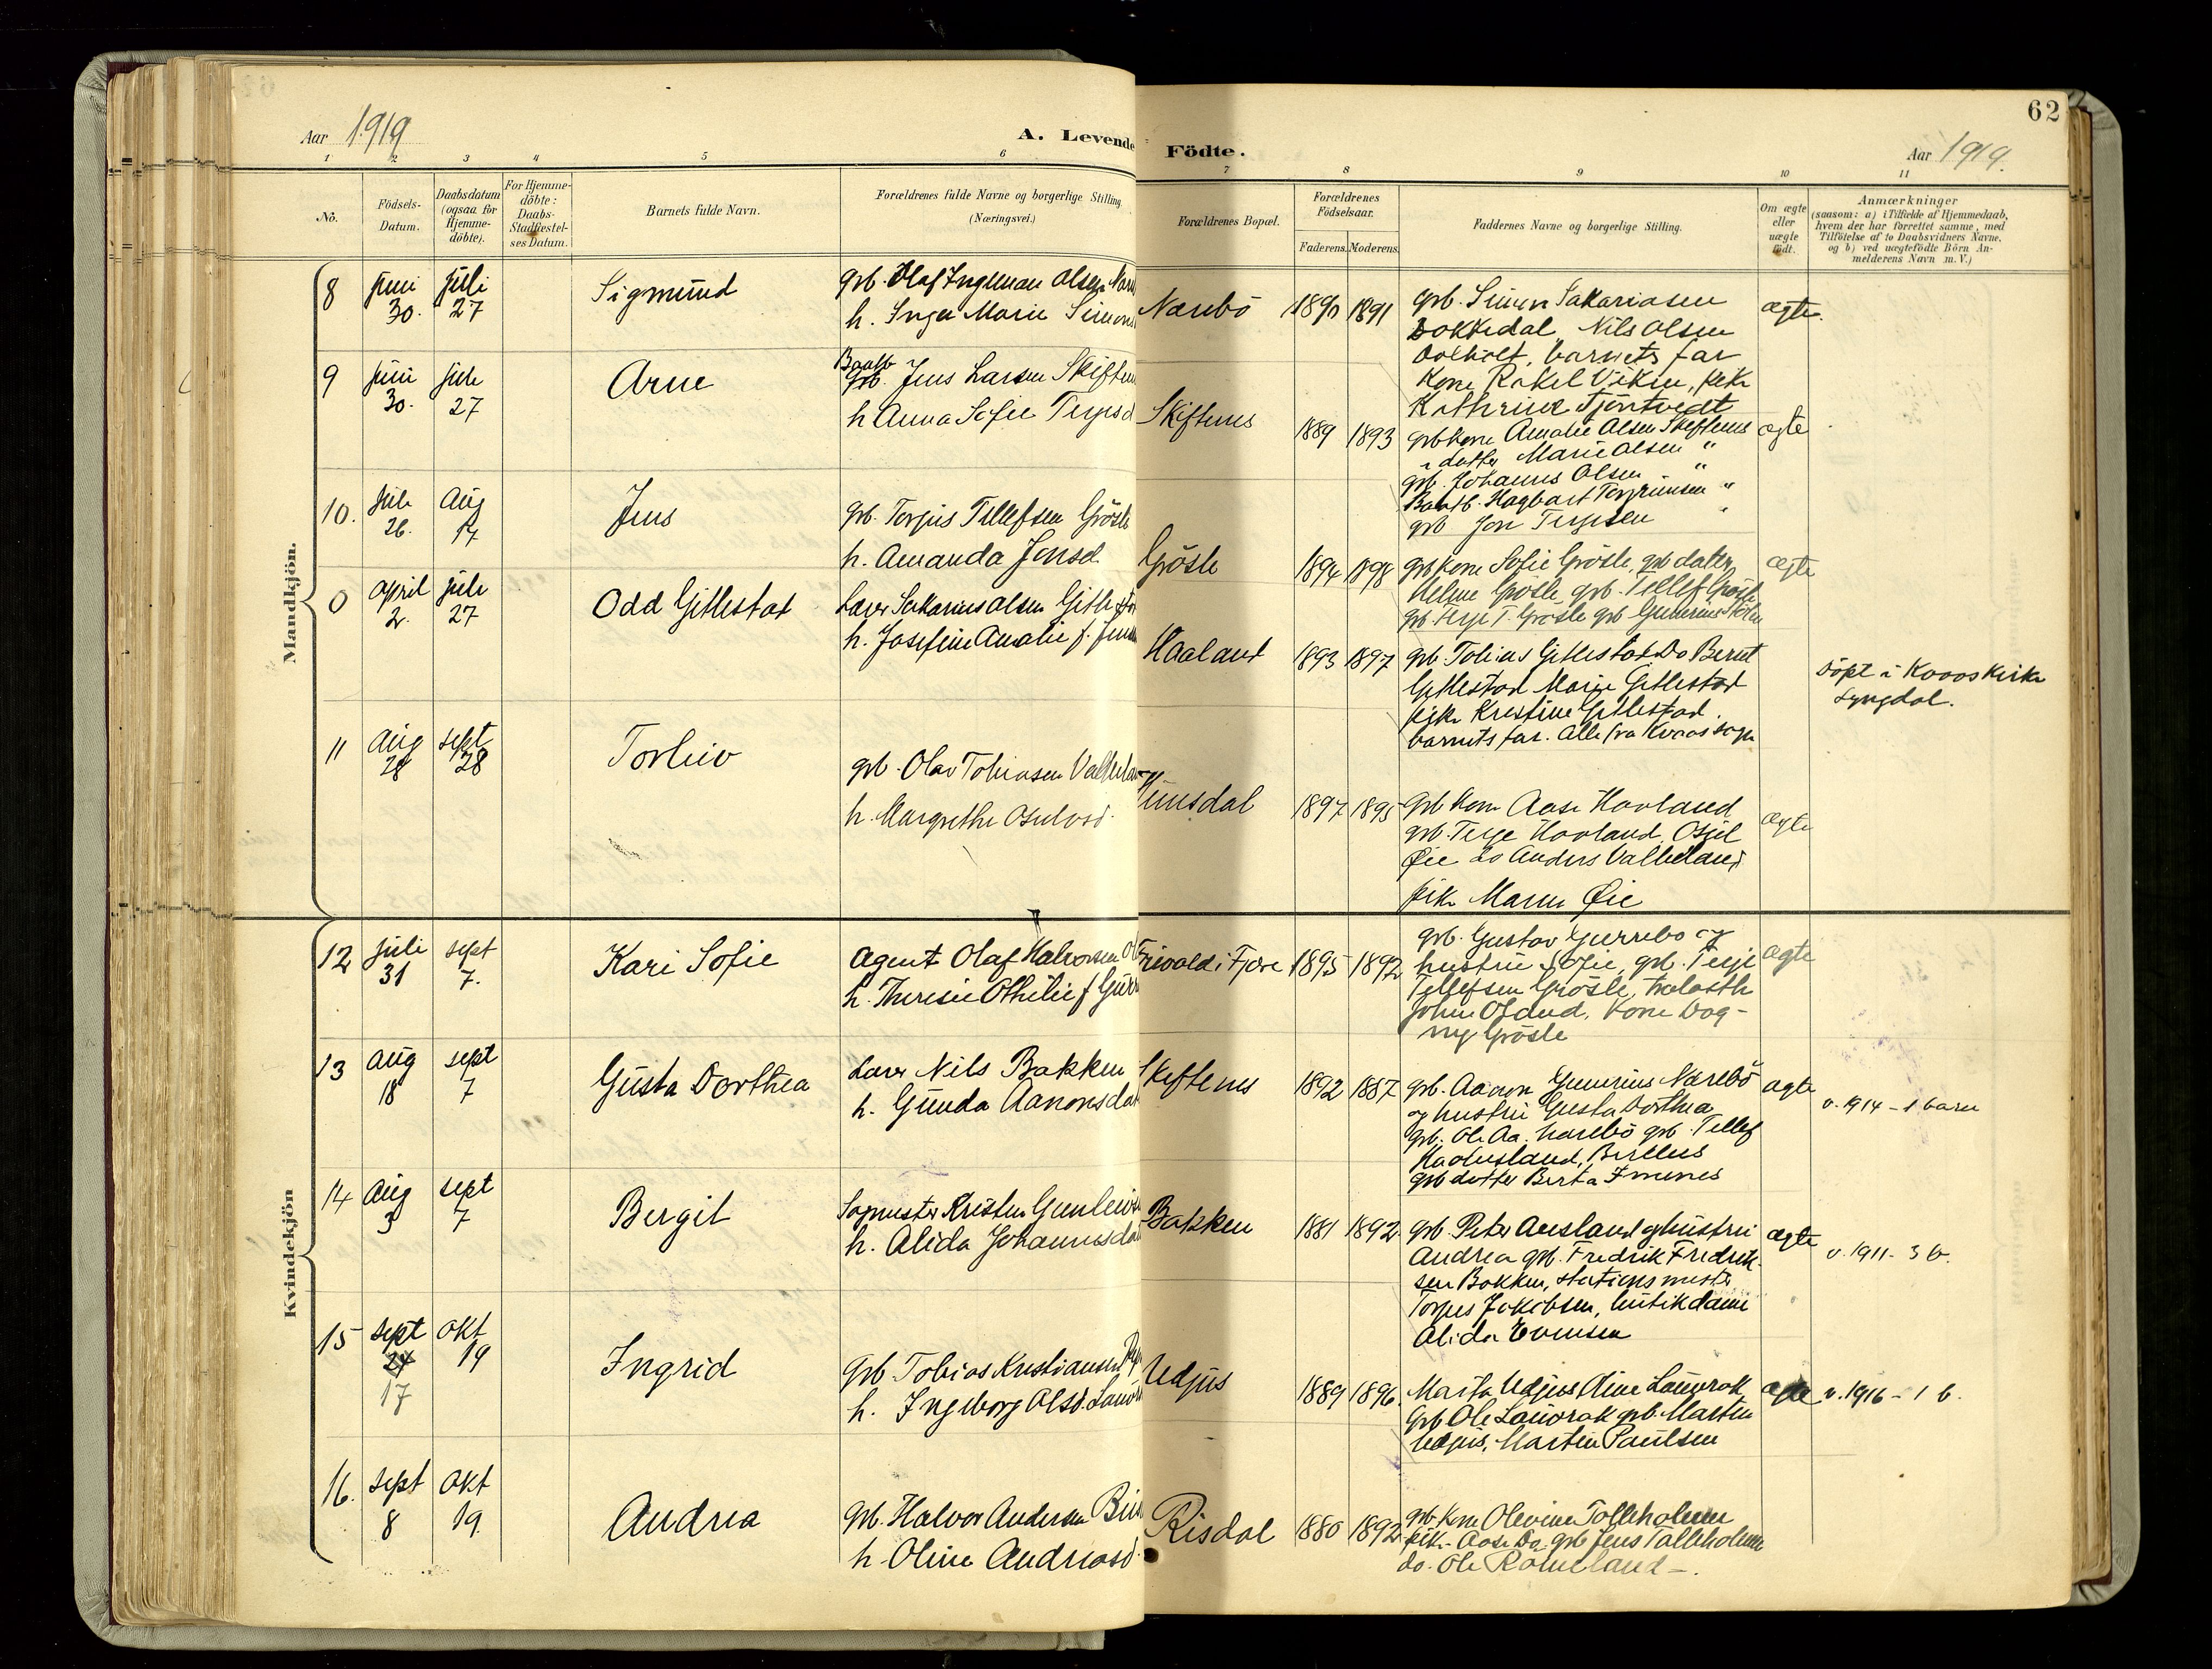 62
Aar 1919
A. Levende Födte.
Aar 1919.
1 2 3 4 5 6 7 8 9 10 11
No.
Födsels-Datum.
Daabsdatum (ogsaa for Hjemme-döbte).
For Hjemme-döbte: Daabs-Stadfæstel-ses Datum.
Barnets fulde Navn.
Forældrenes fulde Navne og borgerlige Stilling. (Næringsvei.)
Forældrenes Bopæl.
Forældrenes Födselsaar.
Faderens. Moderens.
Faddernes Navne og borgerlige Stilling.
Om ægte eller uægte födt.
Anmærkninger
(saasom: a) i Tilfælde af Hjemmedaab,
hvem der har forrettet samme, med
Tilföielse af to Daabsvidners Navne,
og b) ved uægtefödte Börn An-
melderens Navn m. V.)
Mandkjön.
8 juni 30. juli 27 Sigmund
grb. Olaf Ingeman Olsen
h. Inga Marie
Narebö 1890 1891
grb. Simen Sakariasen
Dokkedal, Nils Olsen
barnets far
Kone Rakel Viksen, pike
Kathrine Tjöntvedt
ægte.
9 juni 30. juli 27 Arne
grb. Jens Larsen
h Anna Sofie
Skiftenes 1889 1893
grb kone Amalie Olsen Skiftenes
datter Marie Olsen "
grb. Johannes Olsen "
Hagbart Torgrimsen "
grb Jon Terjesen "
ægte
10. juli 26. Aug 17 Jens
grb. Torjus Tellefsen Grösle
h. Amanda Jensd.
Grösle 1894 1898
grb kone Sofie Grösle, grb datter
Helene Grösle, grb. Tellef Grösle
grb. Terje T. Grösle grb Gunerius
ægte
0 april 2. juli 27 Odd Gitlestad
Lærer Sakarias Olsen
h. Josefine Amalie f.
Haaland 1893 1897
grb. Tobias Gitlestad Do Bernt
Gitlestad Marie Gitlestad
pike Kristine Gitlestad.
barnets far. Alle fra Kvaas sogn
döpt i Kvaas Kirke
Lyngdal.
11 Aug 28 sept 28 Torleiv
grb. Olav Tobiasen
h. Margrethe Osulvsd.
1897 1895
grb kone Aase Hovland
grb. Terje Hovland, Osjul
Øie do Anders Valbeland
pike Maren Øie
ægte
Kvindekjön
12 juli 31 sept 7. Kari Sofie
Agent Olaf Halvorsen
h. Theresie Othilie f
Frivold i Fjære 1895 1892
grb. Gustav Gurrebo og
hustru Sofie, grb. Terje
Tellefsen Grösle,
John Osland, Kone Dag-
ny Grösle
ægte
13 Aug 18 sept 7 Gusta Dorthea
Lærer Nils Bakken
h. Gunda
Skiftenes 1892 1887
grb. Aanon Gunerius Narebö
og hustru Gusta Dorthea
grb. Ole Aa. Narebö grb. Tellef
grb datter Berta
ægte
v. 1914 - 1 barn
14 Aug 3 sept 7 Bergit
Sagmester Kristen
h. Alida
Bakken 1881 1892
grb. Peter Ausland og hustru
Andrea grb. Fredrik Fredrik-
sen Bakken, stationsmester
Torjus Jakobsen, butikdame
Alida Evensen
ægte
v. 1911 - 3 b.
15 sept 17 okt 19 Ingrid
grb. Tobias Kristiansen
h. Ingeborg Olsd.
Udjus 1889 1896
Marta Udjus Oline Lauvrak
grb Ole Lauvrak grb. Martin
Udjus, Martin Paulsen
ægte
v. 1916 - 1 b.
16. sept 8 okt 19. Andrea
grb. Halvor Andersen
h. Oline Andreasd.
Risdal 1880 1892
grb. kone Olevine Tolleholmen
pike Aase Do grb Jens Tolleholmen
do. Ole Rameland -.